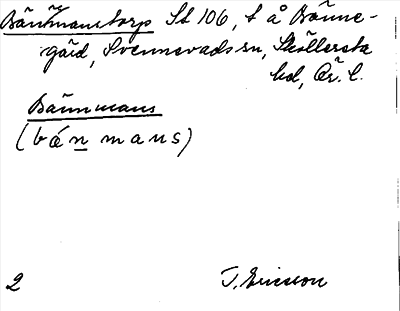 Bännmanstorp St 106, t å Bänne-
gård, Svennevads sn, Sköllersta
hd, Ör. l.
Bännmans
(bánmans)
2 J. Ericson